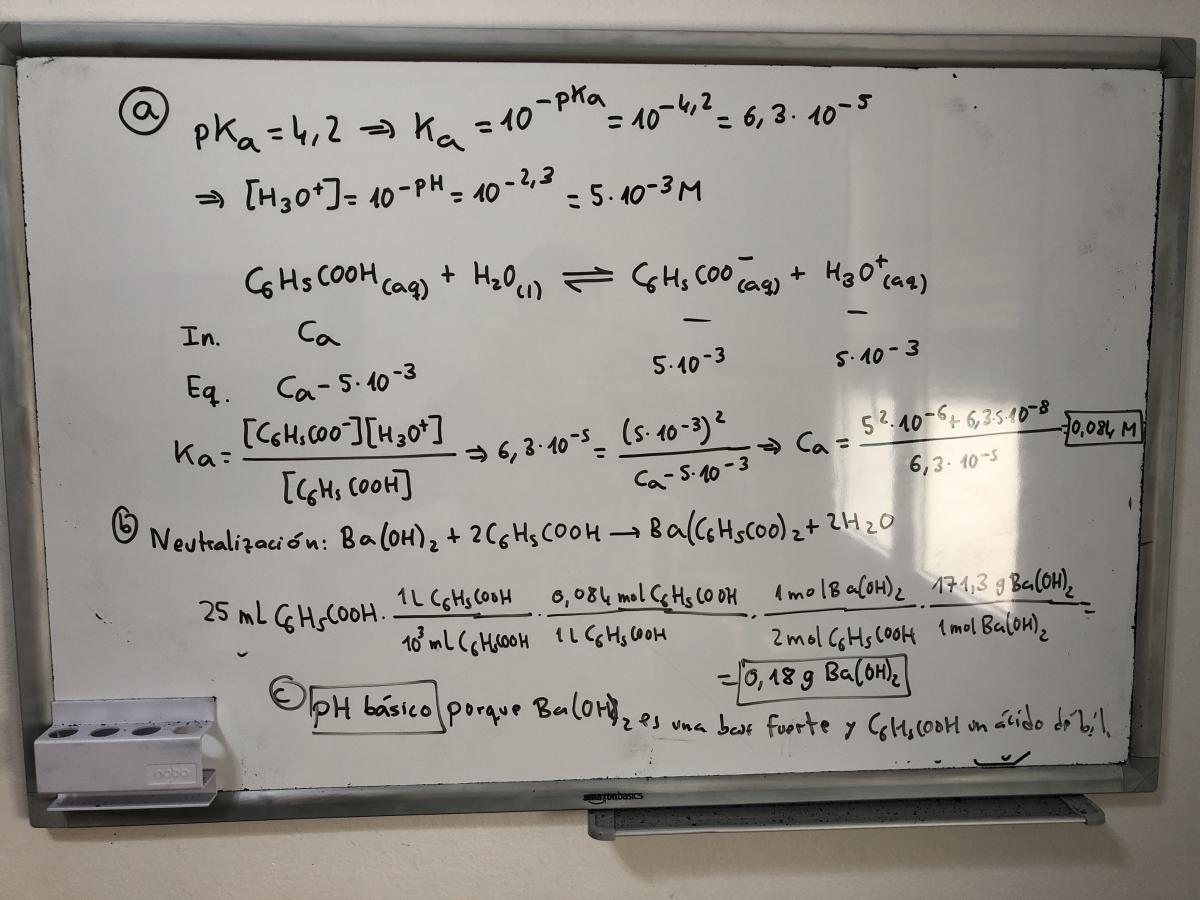 ⓐ pKa = 4,2 ⇒ Ka = 10^-pKa = 10^-4,2 = 6,3·10^-5
⇒ [H3O+] = 10^-pH = 10^-2,3 = 5·10^-3 M
C6H5COOH(aq) + H2O(l) ⇌ C6H5COO^-(aq) + H3O^+(aq)
In. Ca — —
Eq. Ca - 5·10^-3 5·10^-3 5·10^-3
Ka = [C6H5COO^-][H3O^+] / [C6H5COOH] ⇒ 6,3·10^-5 = (5·10^-3)^2 / Ca - 5·10^-3 ⇒ Ca = 5^2·10^-6 + 6,3·5·10^-8 / 6,3·10^-5 = 0,084 M
ⓑ Neutralización: Ba(OH)2 + 2C6H5COOH → Ba(C6H5COO)2 + 2H2O
25 mL C6H5COOH · 1L C6H5COOH / 10^3 mL C6H5COOH · 0,084 mol C6H5COOH / 1L C6H5COOH · 1 mol Ba(OH)2 / 2 mol C6H5COOH · 171,3 g Ba(OH)2 / 1 mol Ba(OH)2 =
= 0,18 g Ba(OH)2
ⓒ pH básico porque Ba(OH)2 es una base fuerte y C6H5COOH un ácido débil.
nobo
amazonbasics